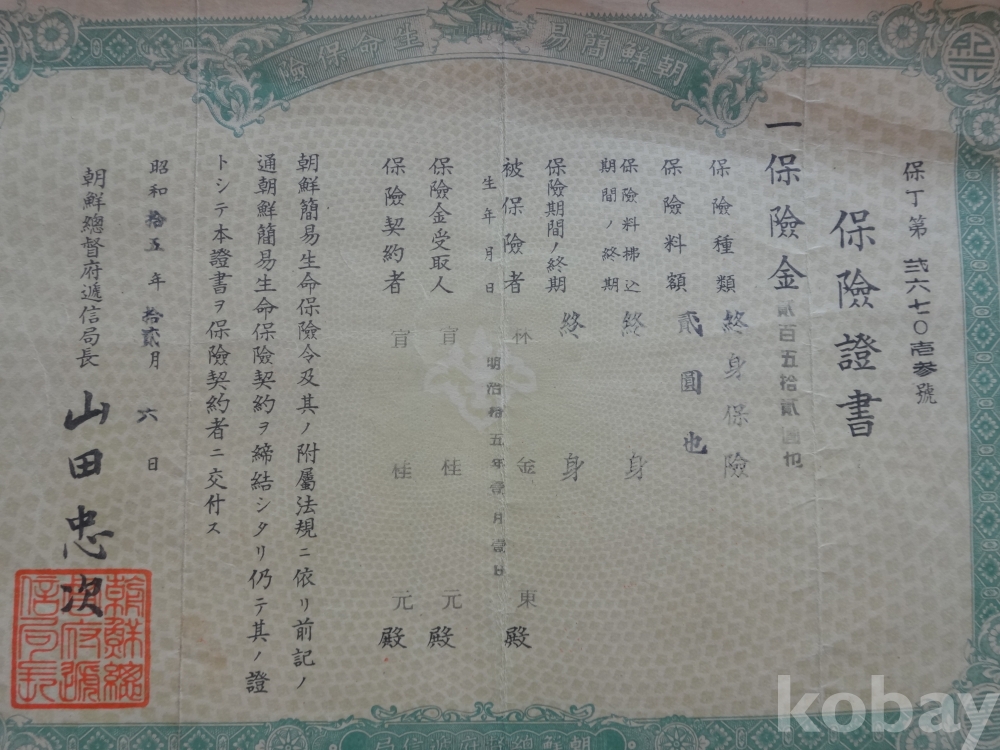 朝鮮簡易生命保險
保丁第弐六七〇壱参號
保險證書
一保險金貳百五拾貳圓也
保險種類 終身保險
保險料額 貳圓也
保險料拂込期間ノ終期 終身
保險期間ノ終期 終身
被保險者 林金東殿
生年月日 明治拾五年壹月壹日
保險金受取人 官桂元殿
保險契約者 官桂元殿
朝鮮簡易生命保險令及其ノ附屬法規ニ依リ前記ノ
通朝鮮簡易生命保險契約ヲ締結シタリ仍テ其ノ證
トシテ本證書ヲ保險契約者ニ交付ス
昭和拾五年拾貳月六日
朝鮮總督府遞信局長 山田忠次
朝鮮總督府遞信局長
朝鮮總督府遞信局
kobay